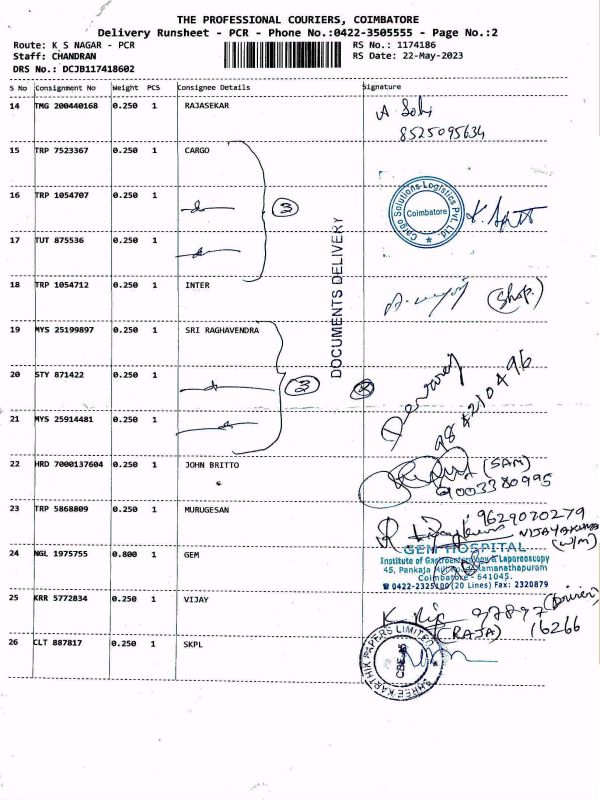 THE PROFESSIONAL COURIERS, COIMBATORE
Delivery Runsheet - PCR - Phone No.:0422-3505555 - Page No.:2
Route: K S NAGAR - PCR
RS No.: 1174186
Staff: CHANDRAN
RS Date: 22-May-2023
DRS No.: DCJB117418602
S No Consignment No Weight PCS Consignee Details Signature
14 TMG 200440168 0.250 1 RAJASEKAR
8525095634
15 TRP 7523367 0.250 1 CARGO
16 TRP 1054707 0.250 1
3
Cargo Solutions Logistics Pvt. Ltd.
Coimbatore
17 TUT 875536 0.250 1
DOCUMENTS DELIVERY
18 TRP 1054712 0.250 1 INTER
(Shop.)
19 MYS 25199897 0.250 1 SRI RAGHAVENDRA
20 STY 871422 0.250 1
3
21 MYS 25914481 0.250 1
22 HRD 7000137604 0.250 1 JOHN BRITTO
(SAM)
9003380995
23 TRP 5868809 0.250 1 MURUGESAN
9629070279
VIJAYAKUMAR
(W/M)
24 NGL 1975755 0.800 1 GEM
GEM HOSPITAL
Institute of Gastroenterology & Laparoscopy
45, Pankaja Mill Road, Ramanathapuram
Coimbatore - 641045.
☎ 0422-2325100 (20 Lines) Fax: 2320879
25 KRR 5772834 0.250 1 VIJAY
97897
(Driver)
(RAJA) 16266
26 CLT 887817 0.250 1 SKPL
SHREE KARTHIK PAPERS LIMITED